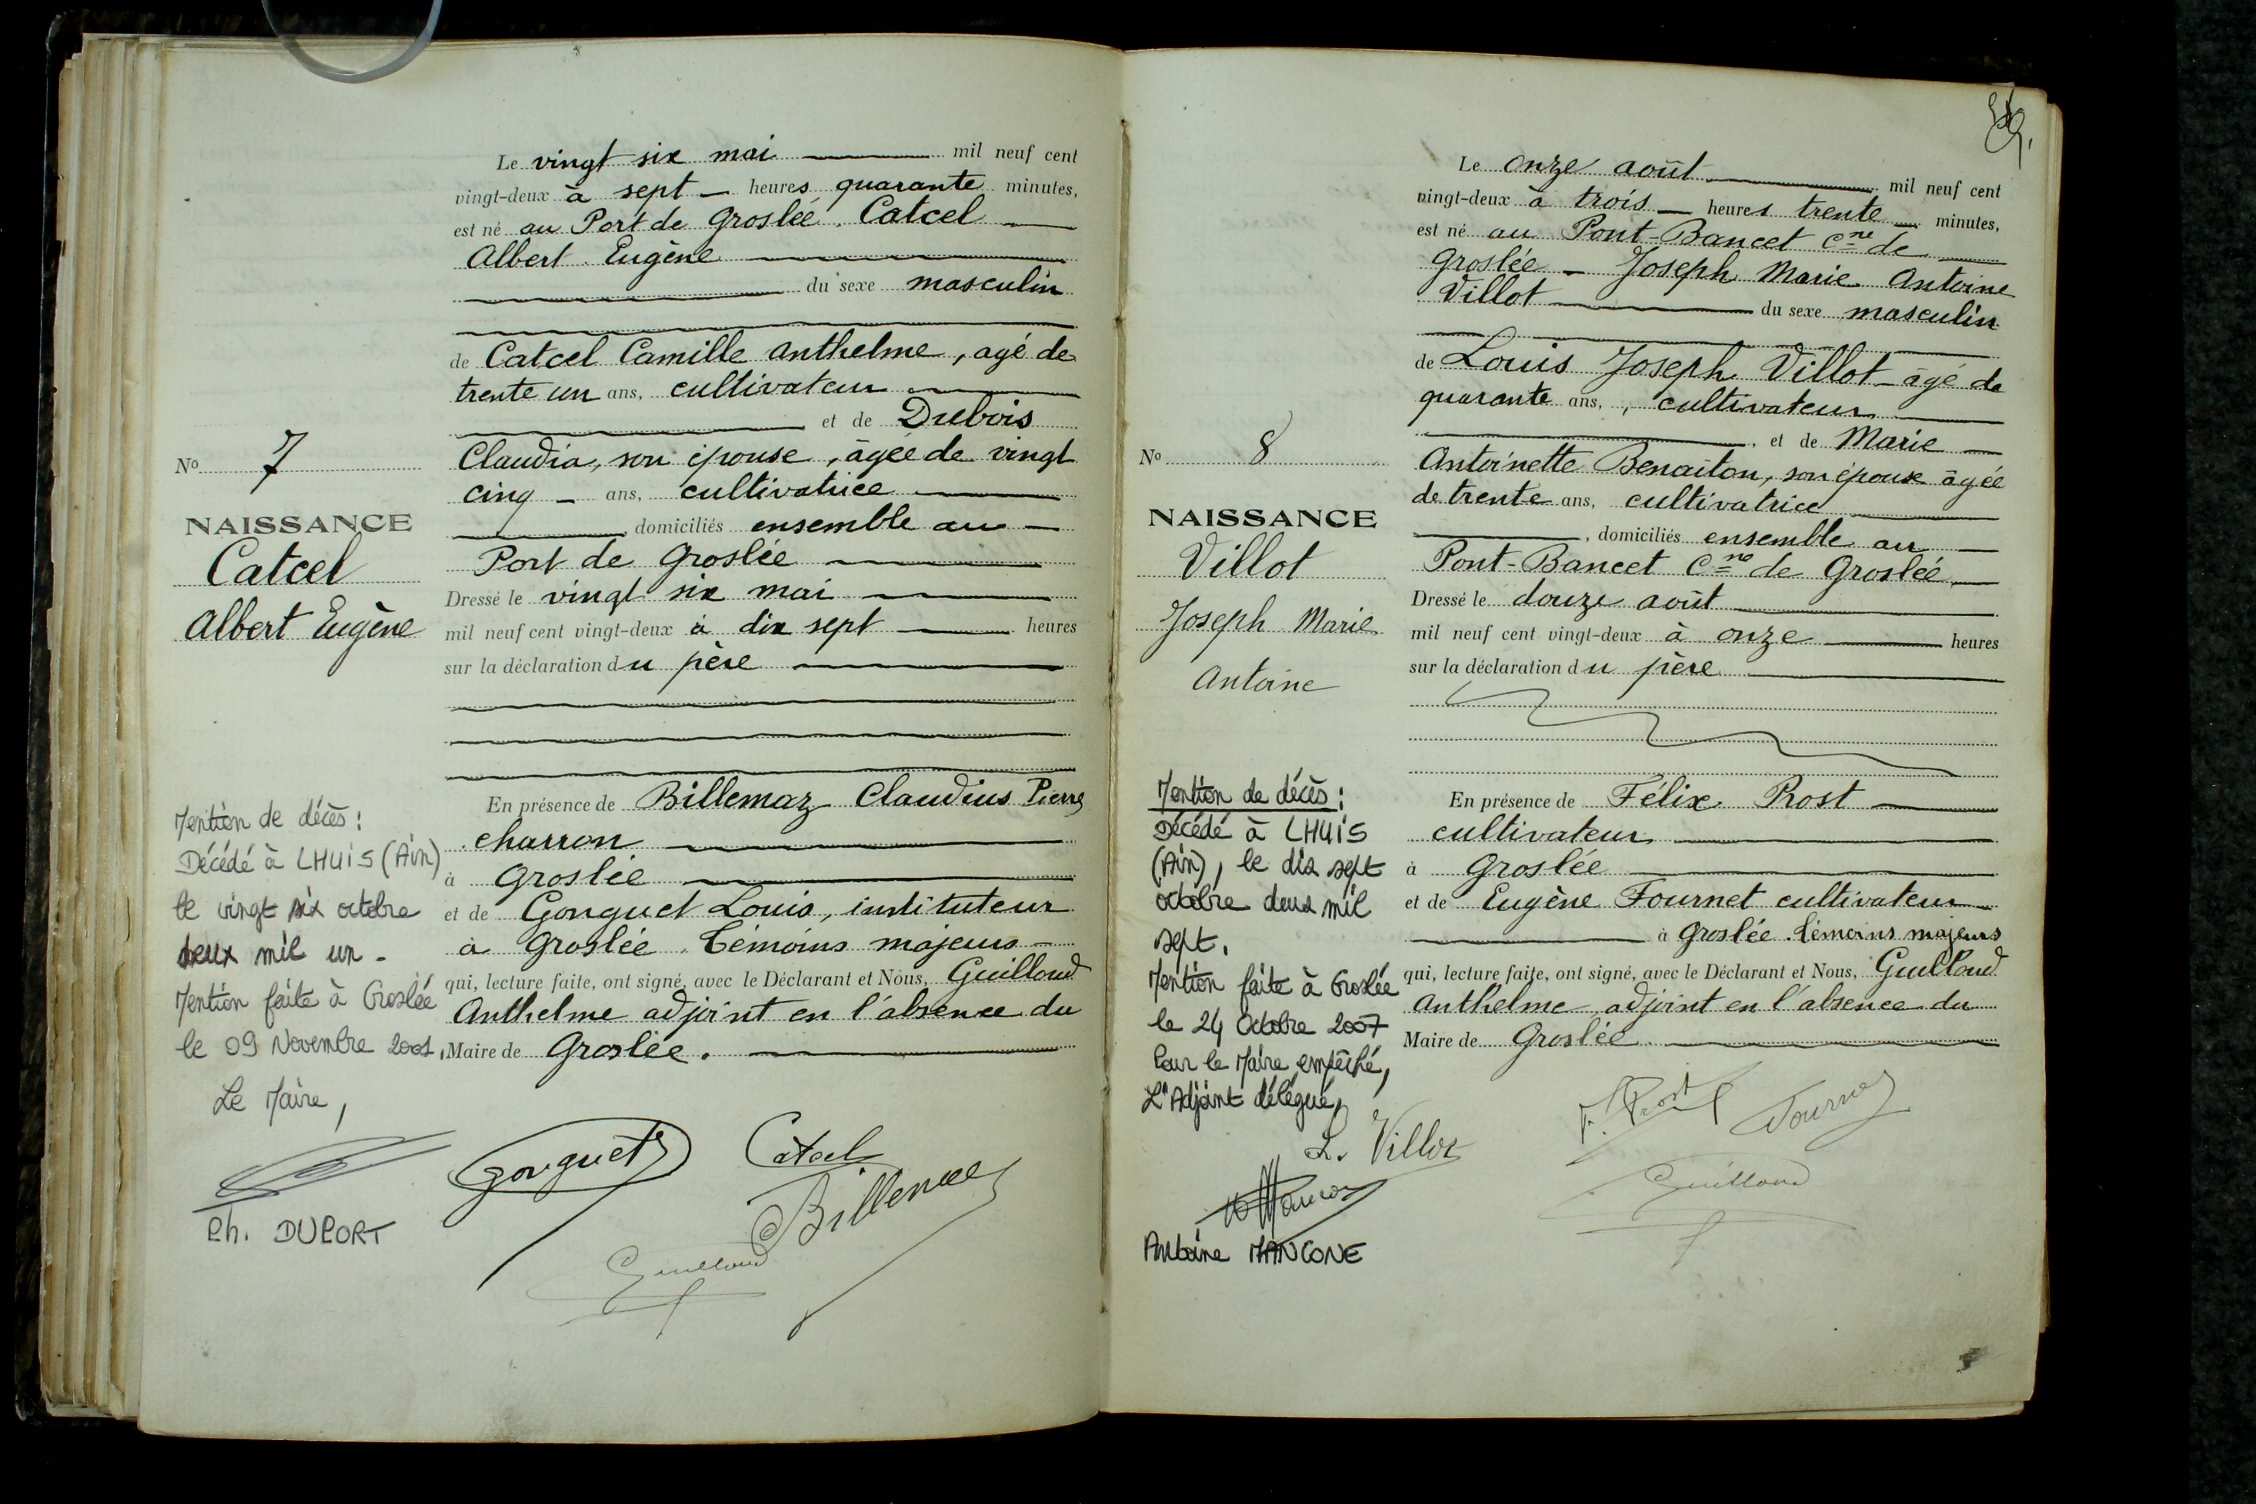 Le vingt six mai mil neuf cent
vingt-deux à sept heures quarante minutes,
est né au Port de Groslée. Catcel
Albert Eugène
du sexe masculin
de Catcel Camille Anthelme, agé de
trente un ans, cultivateur
et de Dubois
Claudia, son épouse, âgée de vingt
cinq ans, cultivatrice
domiciliés ensemble au
Port de Groslée
Dressé le vingt six mai
mil neuf cent vingt-deux à dix sept heures
sur la déclaration du père
En présence de Billemaz Claudius Pierre
charron
à Groslée
et de Gonguet Louis, instituteur
à Groslée. Témoins majeurs
qui, lecture faite, ont signé, avec le Déclarant et Nous, Guilloud
Anthelme adjoint en l'absence du
Maire de Groslée.
Gonguet
Catcel
Billemaz
Guilloud
No 7
NAISSANCE
Catcel
Albert Eugène
Mention de décès:
Décédé à LHUIS (Ain)
le vingt six octobre
deux mil un.
Mention faite à Groslée
le 09 Novembre 2001,
Le Maire,
Ph. DUPORT
Le onze août mil neuf cent
vingt-deux à trois heures trente minutes,
est né au Pont-Bancet Cne de
Groslée - Joseph Marie Antoine
Villot du sexe masculin
de Louis Joseph Villot âgé de
quarante ans, cultivateur
et de Marie
Antoinette Benaiton, son épouse âgée
de trente ans, cultivatrice
, domiciliés ensemble au
Pont-Bancet Cne de Groslée
Dressé le douze août
mil neuf cent vingt-deux à onze heures
sur la déclaration du père
En présence de Félix Prost
cultivateur
à Groslée
et de Eugène Fournet cultivateur
à Groslée. témoins majeurs
qui, lecture faite, ont signé, avec le Déclarant et Nous, Guilloud
Anthelme adjoint en l'absence du
Maire de Groslée
L. Villot
F. Prost
Fournet
Guilloud
No 8
NAISSANCE
Villot
Joseph Marie
Antoine
Mention de décès:
Décédé à LHUIS
(Ain), le dix sept
octobre deux mil
sept.
Mention faite à Groslée
le 24 Octobre 2007
Pour le Maire empêché,
L'Adjoint délégué,
Antoine MANCONE